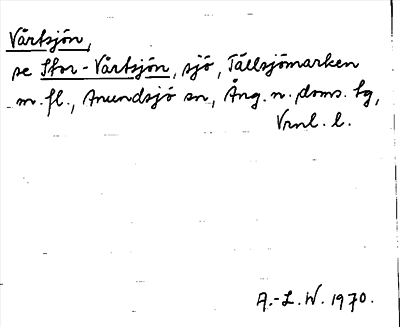 Vårtsjön,
se Stor-Vårtsjön, sjö, Tällsjömarken
m.fl., Anundsjö sn, Ång. n. doms. tg,
Vrnl. l.
A.-L.W. 1970.